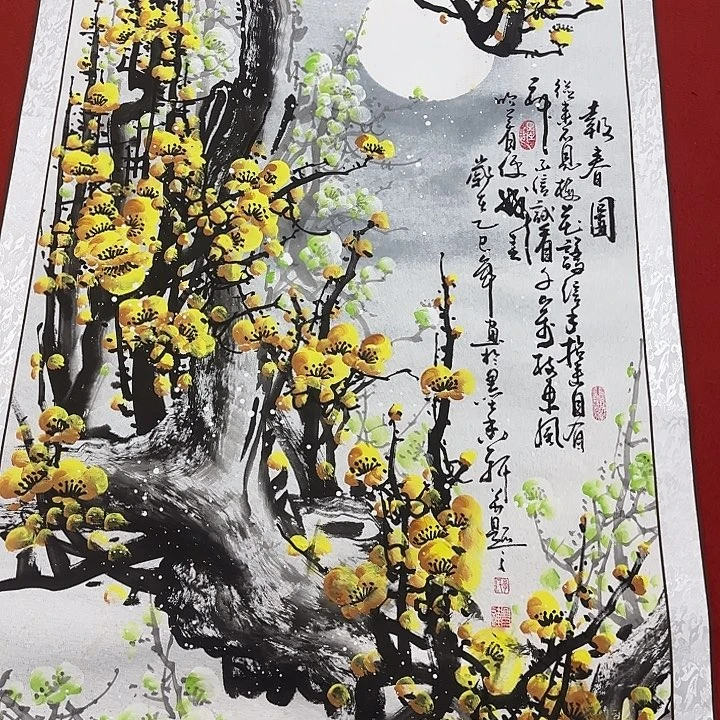 報春圖
從來不見梅花譜信手拈來自有
神不信試看千萬枝東風
吹着便成春
歲在乙巳年畫於墨香軒題